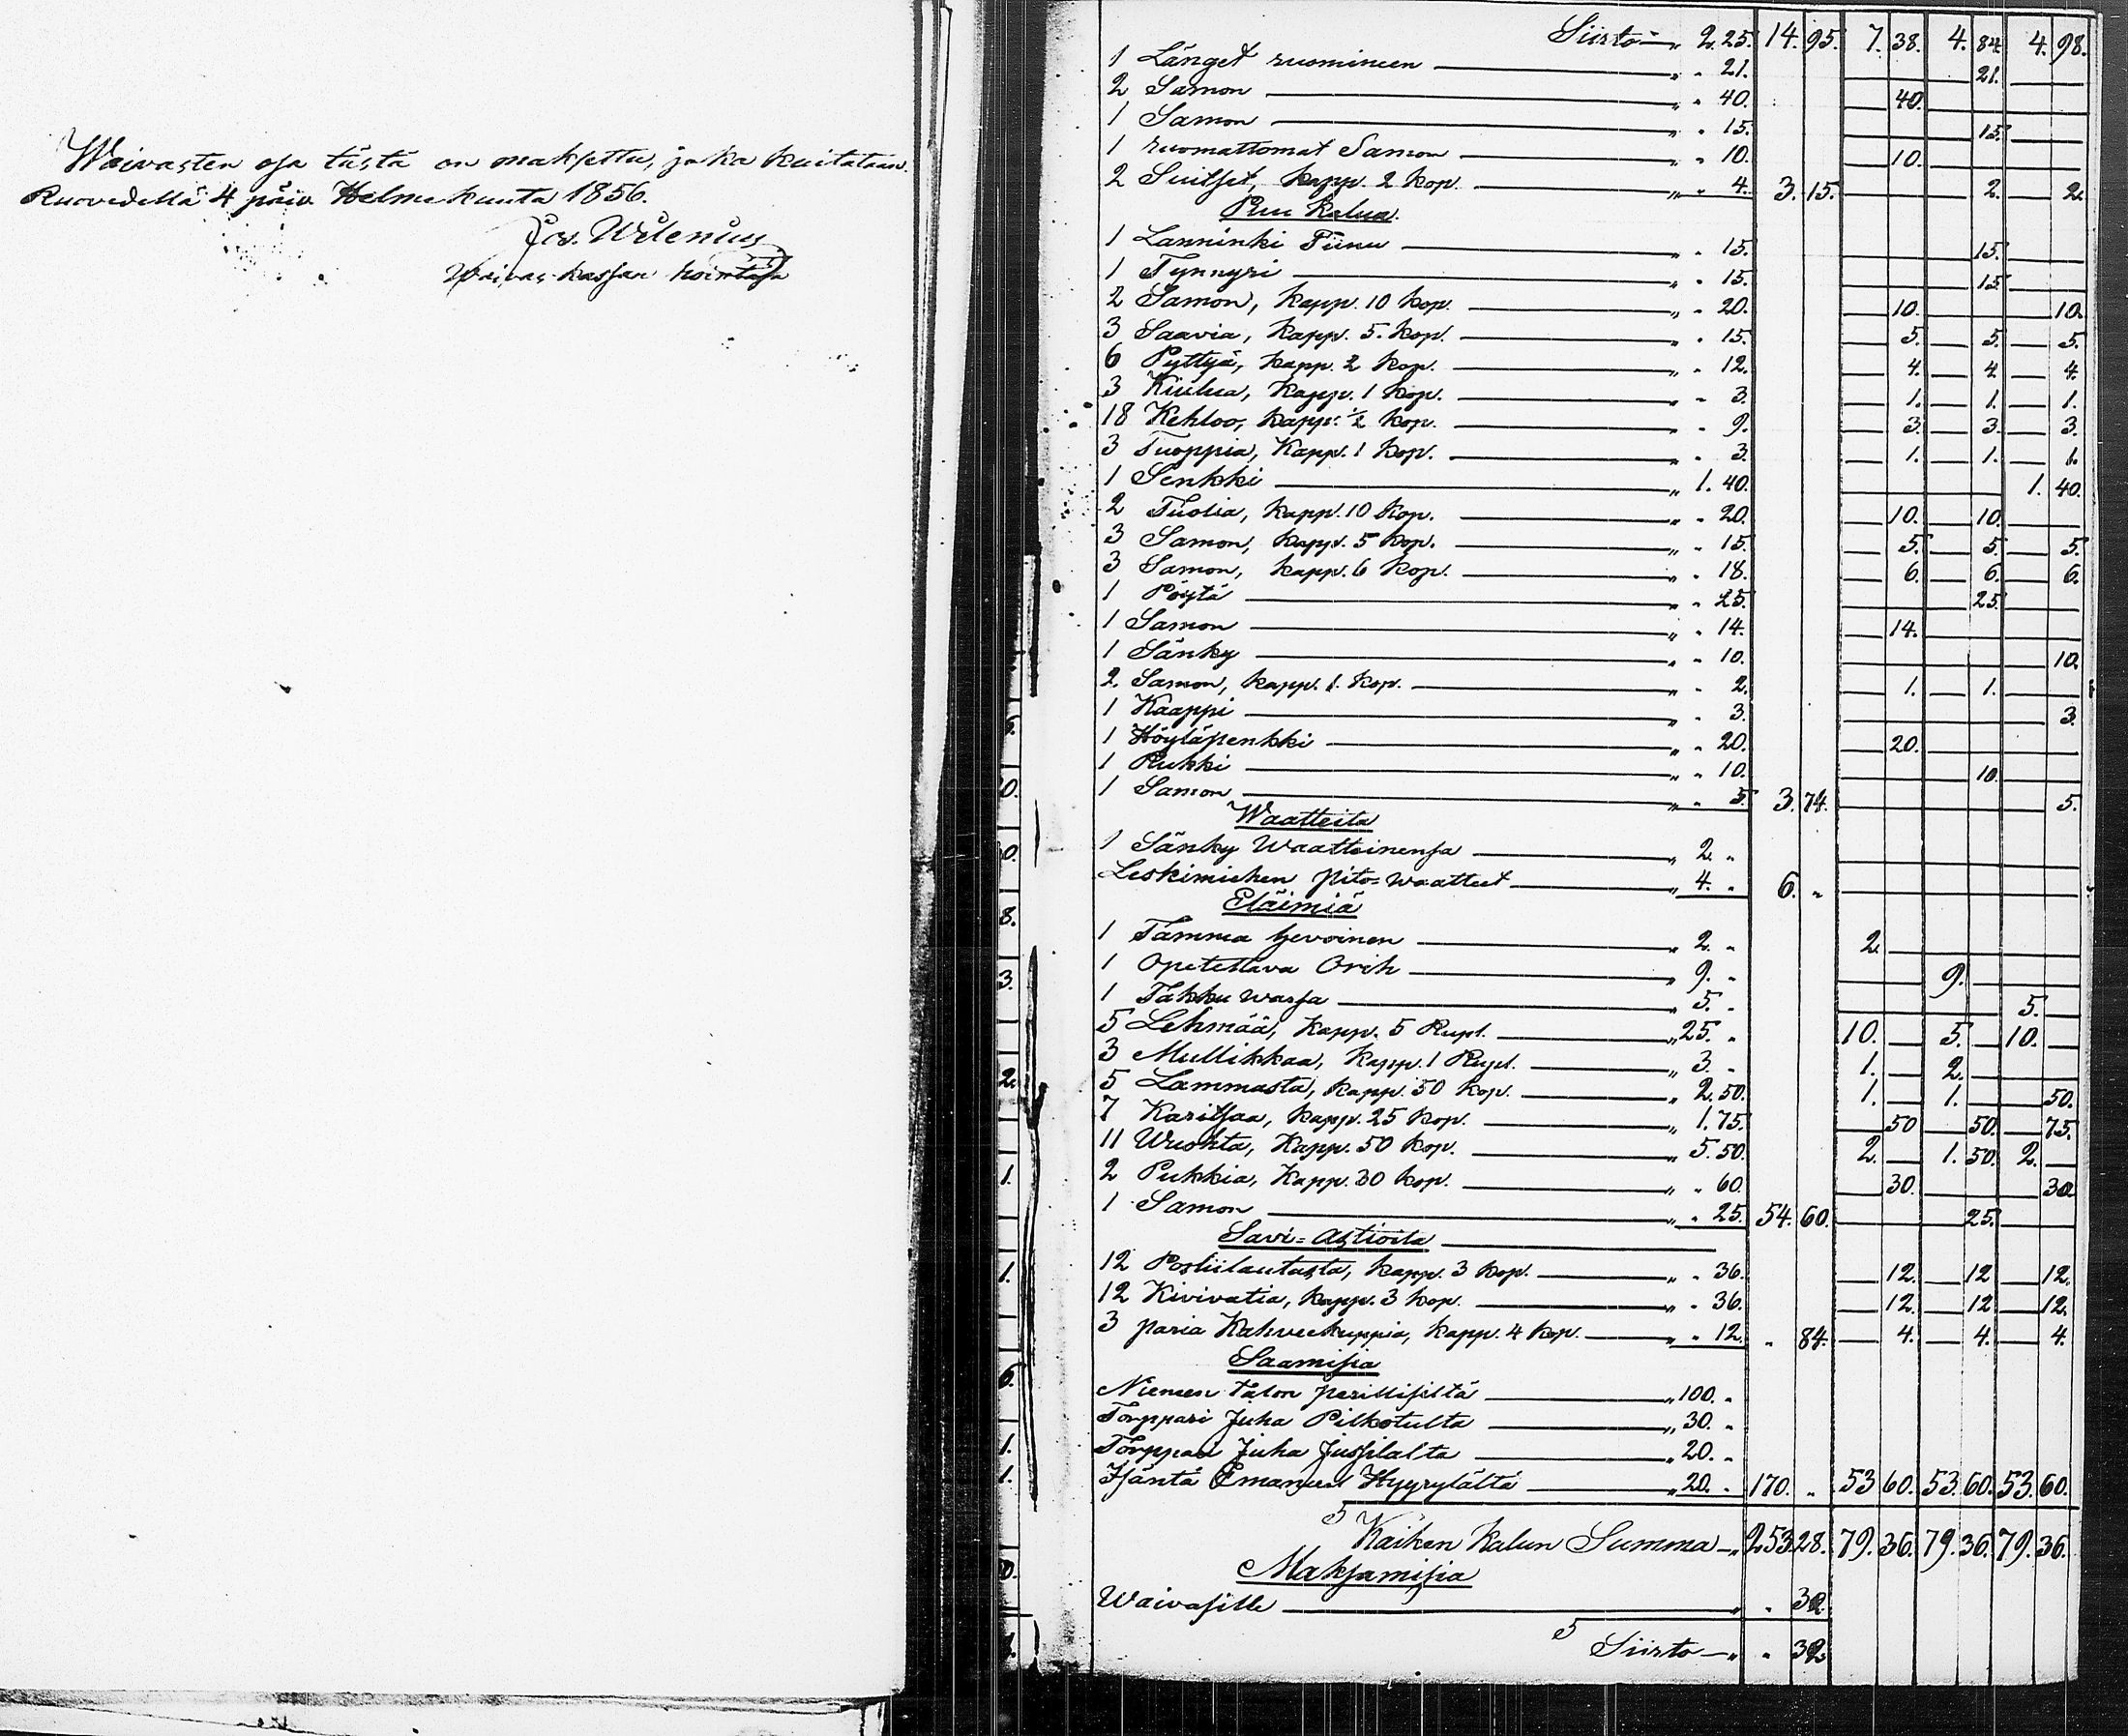 Waivasten osa tästä on maksettu, joka kuitataan.
Ruovedellä 4 päiv. Helmekuuta 1856.
Jos. Wilenius
Waivas-kassan hoimtaja
Siirto — „ 2. 25. 14. 95. 7. 38. 4. 84. 4. 98.
1 Länget ruomineen — „ „ 21. 21.
2 Samon — „ „ 40. 40.
1 Samon — „ „ 15. 15.
1 ruomattomat Samon — „ „ 10. 10.
2 Suitset, kapp. 2 kop. — „ „ 4. 3. 15. 2. 2.
Puu Kalua.
1 Lanninki Tiinu — „ „ 15. 15.
1 Tynnyri — „ „ 15. 15.
2 Samon, kapp. 10 kop. — „ „ 20. 10. 10.
3 Saavia, kapp. 5. kop. — „ „ 15. 5. 5. 5.
6 Pyttyä, kapp. 2 kop. — „ „ 12. 4. 4. 4.
3 Kiulua, kapp. 1 kop. — „ „ 3. 1. 1. 1.
18 Kehloo, kapp. ½ kop. — „ „ 9. 3. 3. 3.
3 Tuoppia, kapp. 1 kop. — „ „ 3. 1. 1. 1.
1 Senkki — „ 1. 40. 1. 40.
2 Tuolia, kapp. 10 kop. — „ „ 20. 10. 10.
3 Samon, kapp. 5 kop. — „ „ 15. 5. 5. 5.
3 Samon, kapp. 6 kop. — „ „ 18. 6. 6. 6.
1 Pöytä — „ „ 25. 25.
1 Samon — „ „ 14. 14.
1 Sänky — „ „ 10. 10.
2 Samon, kapp. 1. kop. — „ „ 2. 1. 1.
1 Kaappi — „ „ 3. 3.
1 Höyläpenkki — „ „ 20. 20.
1 Rukki — „ „ 10. 10.
1 Samon — „ „ 5. 3. 74. 5.
Waatteita
1 Sänky Waatteinensa — „ 2. „
Leskimiehen pito=waatteet — „ 4. „ 6. „
Eläimiä
1 Tamma hevoinen — „ 2. „ 2.
1 Opetettava Orih — „ 9. „ 9.
1 Takku warsa — „ 5. „ 5.
5 Lehmää, kapp. 5 Rupl. — „ 25. „ 10. 5. 10.
3 Mullikkaa, kapp. 1 Rupl. — „ 3. „ 1. 2.
5 Lammasta, kapp. 50 kop. — „ 2. 50. 1. 1. 50.
7 Karitsaa, kapp. 25 kop. — „ 1. 75. 50 50. 75.
11 Wuohta, kapp. 50 kop. — „ 5. 50. 2. 1. 50. 2.
2 Pukkia, kapp. 30 kop. — „ „ 60 30. 30
1 Samon — „ „ 25. 54. 60. 25.
Savi=Astioita
12 Posliilautasta, kapp. 3 kop. — „ „ 36. 12. 12 12.
12 Kivivatia, kapp. 3 kop. — „ „ 36. 12. 12 12.
3 paria Kahveekuppia, kapp. 4 kop. — „ „ 12. „ 84. 4. 4. 4.
Saamisia
Niemen talon perillisiltä — „ 100. „
Torppari Juha Pilkotulta — „ 30. „
Torppari Juha Jussilalta — „ 20. „
Isäntä Emanuel Hyyrylältä — „ 20. „ 170. „ 53 60. 53. 60. 53. 60.
Kaiken kalun Summa — „ 253 28. 79. 36. 79. 36. 79. 36.
Maksamisia
Waivasille — „ „ 32
Siirto — „ „ 32